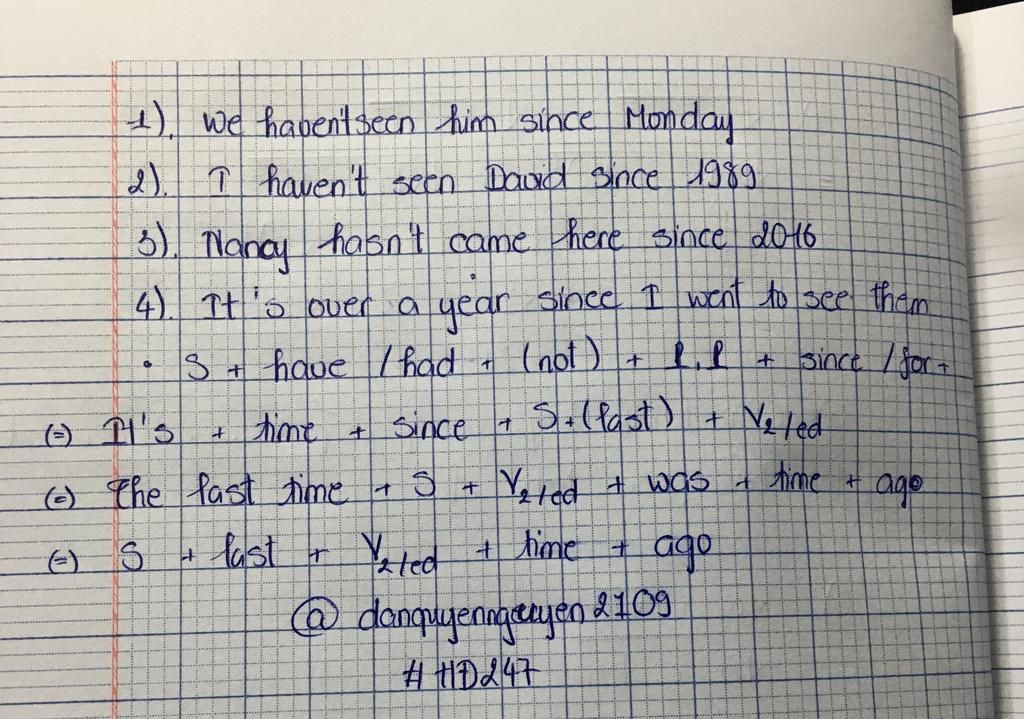 1). We haven't seen him since Monday
2). I haven't seen David since 1989
3). Nancy hasn't came here since 2016
4). It's over a year since I went to see them
• S + have / had + (not) + P.P + since / for +
(=) It's + time + since + S + (last) + V2/ed
(=) The last time + S + V2/ed + was + time + ago
(=) S + last + V2/ed + time + ago
@ danquyennguyen2109
# HD247